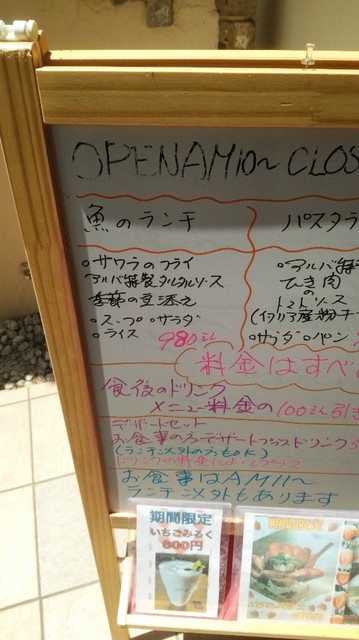 OPENAM10〜 CLOS
魚のランチ
パスタラ
○サワラのフライ
アルバ特製タルタルソース
季節の豆添え
○スープ○サラダ
○ライス
980えん
○アルバ特
ひき肉
の
トマトソース
(イタリア産粉チ
○サラダ○パン
料金はすべ
食後のドリンク
メニュー料金の100えん引き
デザートセット
お食事の方デザートプラスドリンク
(ランチ以外の方もOK)
お食事はAM11〜
ランチ以外もあります
期間限定
いちごみるく
600円
期間限定